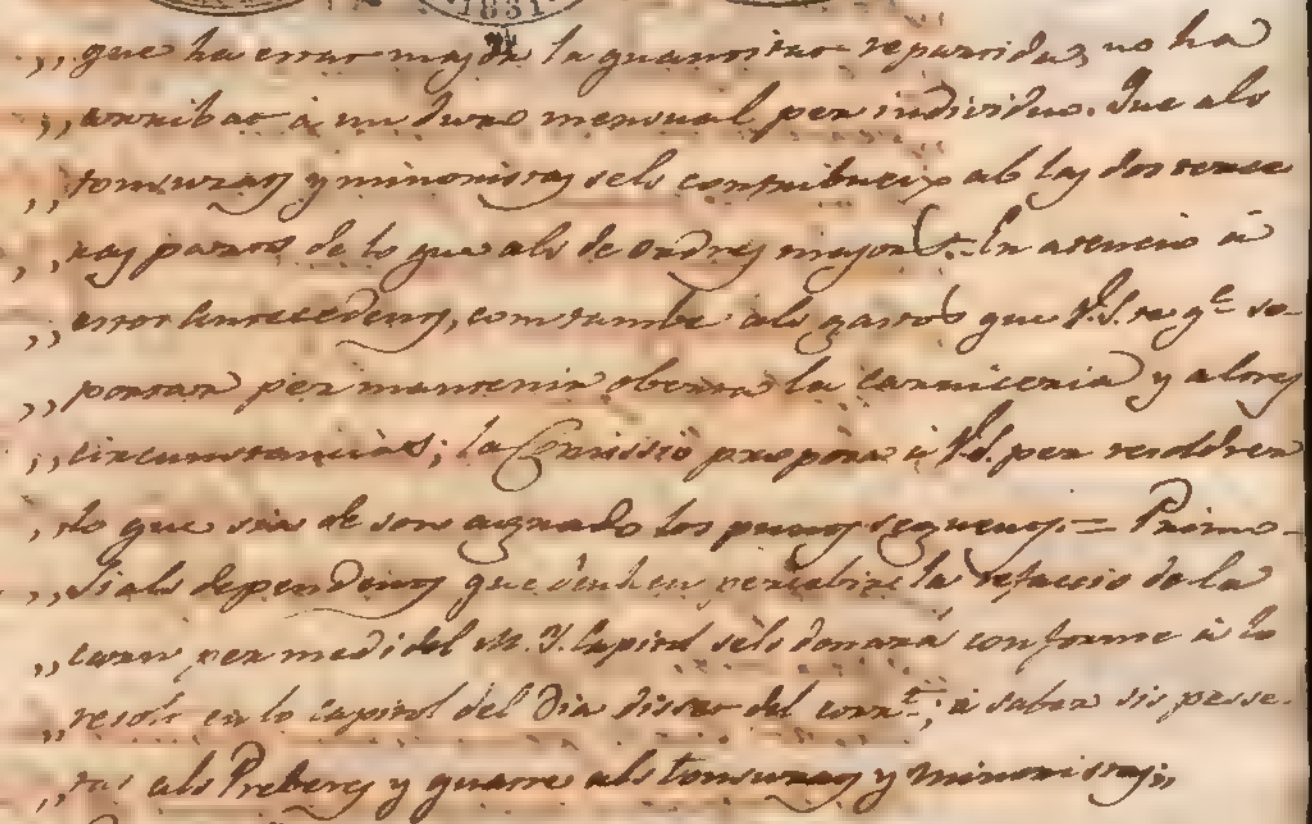 1831
„que ha estat major la quantitat repartida, no ha
„arribat á un duro mensual per individuo. Que als
„tonsurats y minoristas sels contribueix ab las dos terce
„ras parts de lo que als de ordres majors.= En atencio á
„estos antecedents, com tambe als gastos que V.S. te q.e so-
„portar per mantenir oberta la carniceria y altres
„circumstancias; la Comissió proposa á V.S. per resoldrer
„lo que sia de son agrado los punts seguents.= Primo-
„Si als dependents que deuhen percebir la refaccio de la
„carn per medi del M. Y. Capitol sels donará conforme á lo
„resolt en lo Capitol del dia disset del corr.t; á saber sis pesse-
„tas als Preberes y quatre als tonsurats y minoristas;„